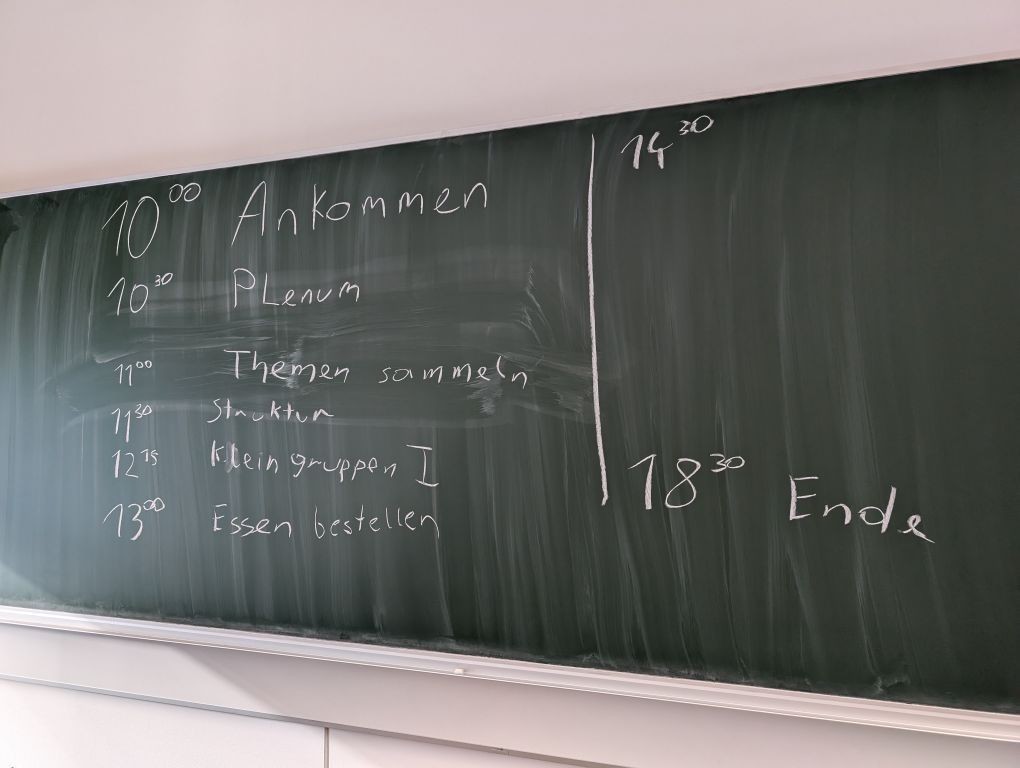 10⁰⁰ Ankommen
10³⁰ Plenum
11⁰⁰ Themen sammeln
11³⁰ Struktur
12¹⁵ Kleingruppen I
13⁰⁰ Essen bestellen
14³⁰
18³⁰ Ende